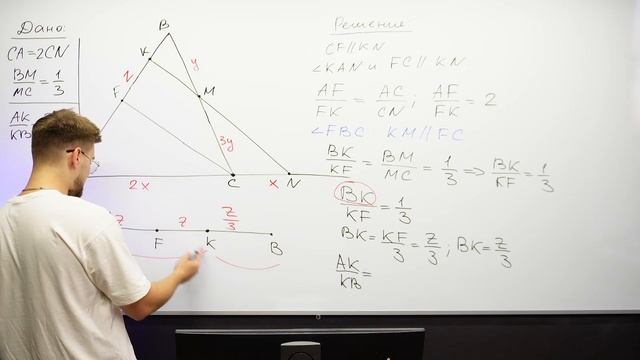 Дано:
CA=2CN
BM/MC = 1/3
AK/KB
B
K
y
z
M
F
3y
2x
C
x
N
z
z
z/3
F
K
B
Решение
CF//KN
∠KAN и FC//KN
AF/FK = AC/CN; AF/FK = 2
∠FBC KM//FC
BK/KF = BM/MC = 1/3 => BK/KF = 1/3
BK/KF = 1/3
BK = KF/3 = z/3; BK = z/3
AK/KB =